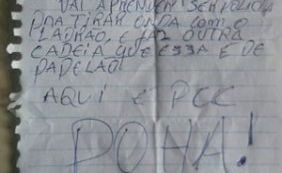 VAI APRENDER SER POLICIA
PRA TIRAR ONDA COM O
LADRÃO, E FAZ OUTRA
CADEIA QUE ESSA E DE
PAPELÃO!
AQUI E PCC
PORA!